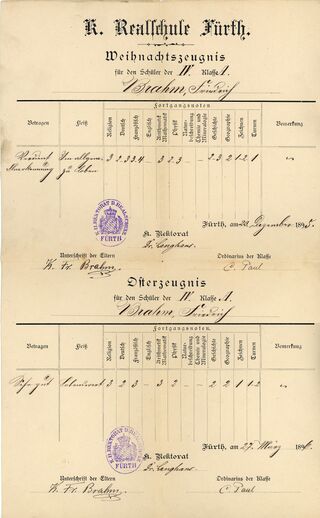 K. Realschule Fürth.
Weihnachtszeugnis
für den Schüler der IV. Klasse A.
Brahm, Friedrich
Fortgangsnoten
Betragen Fleiß Religion Deutsch Französisch Englisch Arithmetik Mathematik Physik Naturbeschreibung Chemie und Mineralogie Geschichte Geographie Zeichnen Turnen Bemerkung
Verdient Anerkennung Im allgem. zu loben 3 2 3 3.4 - 3 2 3 - - 2 3 2 1 2 1
Fürth, am 23. Dezember 1895.
K. REKTORAT D. REALSCHULE FÜRTH
K. Rektorat
Dr. Langhans
Unterschrift der Eltern Ordinarius der Klasse
K. Fr. Brahm. C. Paul
Osterzeugnis
für den Schüler der IV. Klasse A.
Brahm, Friedrich
Fortgangsnoten.
Betragen Fleiß Religion Deutsch Französisch Englisch Arithmetik Mathematik Physik Naturbeschreibung Chemie und Mineralogie Geschichte Geographie Zeichnen Turnen Bemerkung
Sehr gut 3 2 3 - 3 2 - - 2 2 1 1.2
Fürth, am 27. März 1896.
K. REKTORAT D. REALSCHULE FÜRTH
K. Rektorat
Dr. Langhans
Unterschrift der Eltern Ordinarius der Klasse
K. Fr. Brahm. C. Paul